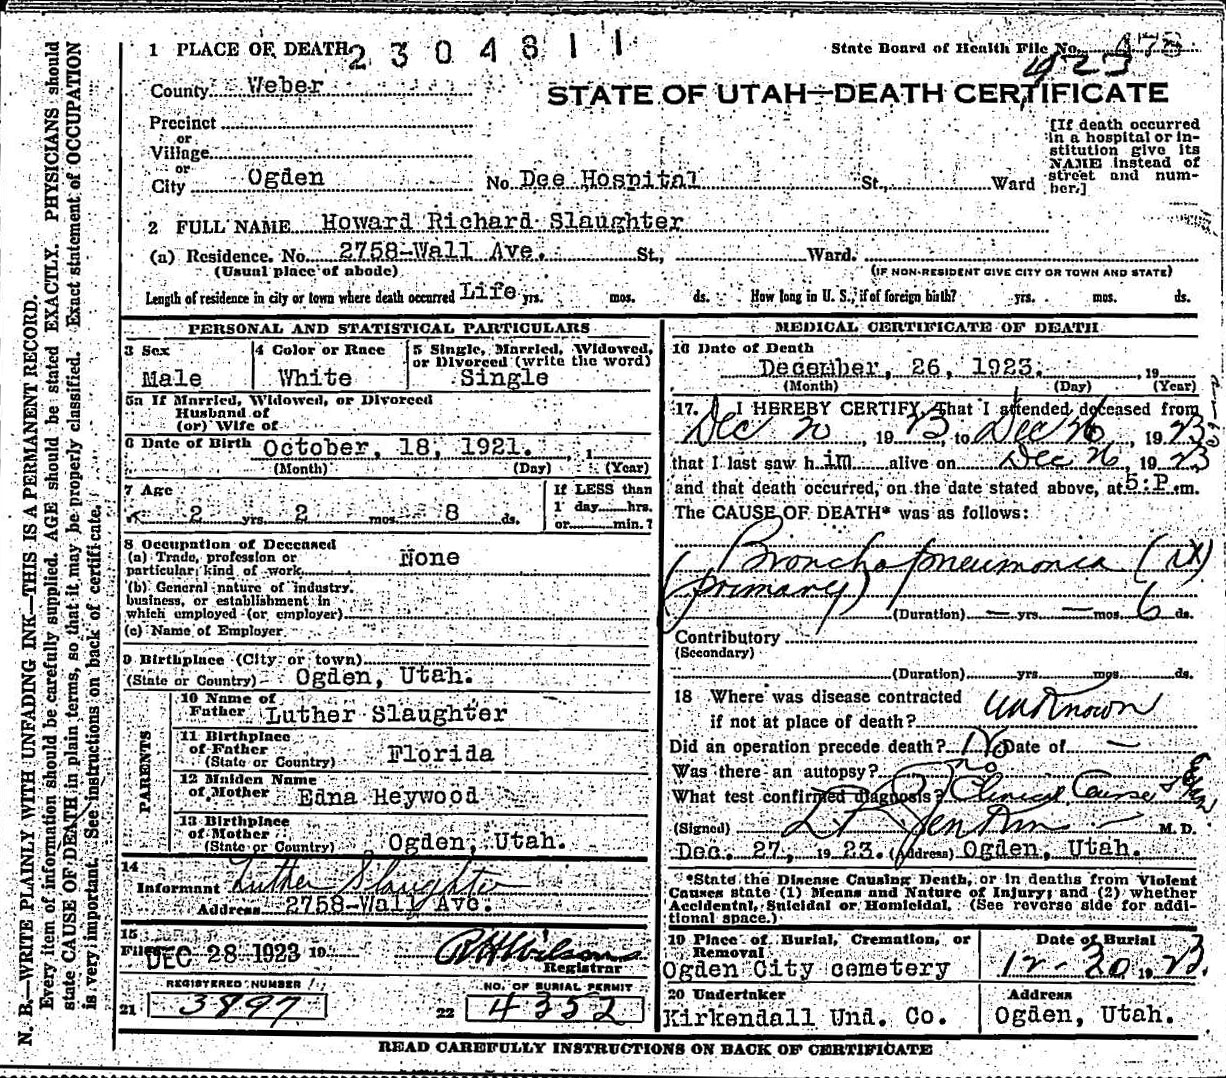 1 PLACE OF DEATH 2304811
State Board of Health File No. 478
1923
County Weber
STATE OF UTAH—DEATH CERTIFICATE
Precinct
or
Village
or
City Ogden No. Dee Hospital St., Ward
[If death occurred
in a hospital or in-
stitution give its
NAME instead of
street and num-
ber.]
2 FULL NAME Howard Richard Slaughter
(a) Residence. No. 2758-Wall Ave. St., Ward.
(Usual place of abode) (IF NON-RESIDENT GIVE CITY OR TOWN AND STATE)
Length of residence in city or town where death occurred Life yrs. mos. ds. How long in U. S., if of foreign birth? yrs. mos. ds.
PERSONAL AND STATISTICAL PARTICULARS
3 Sex
Male
4 Color or Race
White
5 Single, Married, Widowed,
or Divorced (write the word)
Single
5a If Married, Widowed, or Divorced
Husband of
(or) Wife of
6 Date of Birth October, 18, 1921. 1
(Month) (Day) (Year)
7 Age
2 yrs. 2 mos. 8 ds.
If LESS than
1 day hrs.
or min.?
8 Occupation of Deceased
(a) Trade, profession or
particular kind of work None
(b) General nature of industry,
business, or establishment in
which employed (or employer)
(c) Name of Employer
9 Birthplace (City or town)
(State or Country) Ogden, Utah.
PARENTS
10 Name of
Father Luther Slaughter
11 Birthplace
of Father
(State or Country) Florida
12 Maiden Name
of Mother Edna Heywood
13 Birthplace
of Mother
(State or Country) Ogden, Utah.
14
Informant Luther Slaughter
Address 2758-Wall Ave.
15
Filed DEC 28 1923 19 R H Wilson
Registrar
REGISTERED NUMBER
21 3897
NO. OF BURIAL PERMIT
22 4352
MEDICAL CERTIFICATE OF DEATH
16 Date of Death
December, 26, 1923. , 19
(Month) (Day) (Year)
17. I HEREBY CERTIFY, That I attended deceased from
Dec 20, 1923, to Dec 26, 1923
that I last saw h im alive on Dec 26, 1923
and that death occurred, on the date stated above, at 5:P.m.
The CAUSE OF DEATH* was as follows:
Broncho pneumonia
(primary)
(Duration) — yrs. — mos. 6 ds.
Contributory
(Secondary)
(Duration) yrs. mos. ds.
18 Where was disease contracted
if not at place of death? unknown
Did an operation precede death? No Date of —
Was there an autopsy? no
What test confirmed diagnosis? Clinical Course
(Signed) M. D.
Dec. 27, 1923. (Address) Ogden, Utah.
*State the Disease Causing Death, or in deaths from Violent
Causes state (1) Means and Nature of Injury; and (2) whether
Accidental, Suicidal or Homicidal. (See reverse side for addi-
tional space.)
19 Place of Burial, Cremation, or
Removal
Ogden City cemetery
Date of Burial
12-30 1923.
20 Undertaker
Kirkendall Und. Co.
Address
Ogden, Utah.
READ CAREFULLY INSTRUCTIONS ON BACK OF CERTIFICATE
N. B.—WRITE PLAINLY WITH UNFADING INK—THIS IS A PERMANENT RECORD.
Every item of information should be carefully supplied. AGE should be stated EXACTLY. PHYSICIANS should
state CAUSE OF DEATH in plain terms, so that it may be properly classified. Exact statement of OCCUPATION
is very important. See instructions on back of certificate.